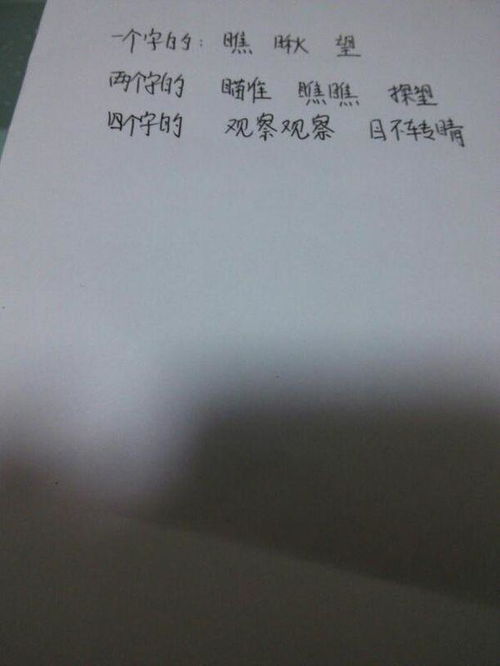 一个字的：瞧 瞅 望
两个字的 瞄准 瞧瞧 探望
四个字的 观察观察 目不转睛